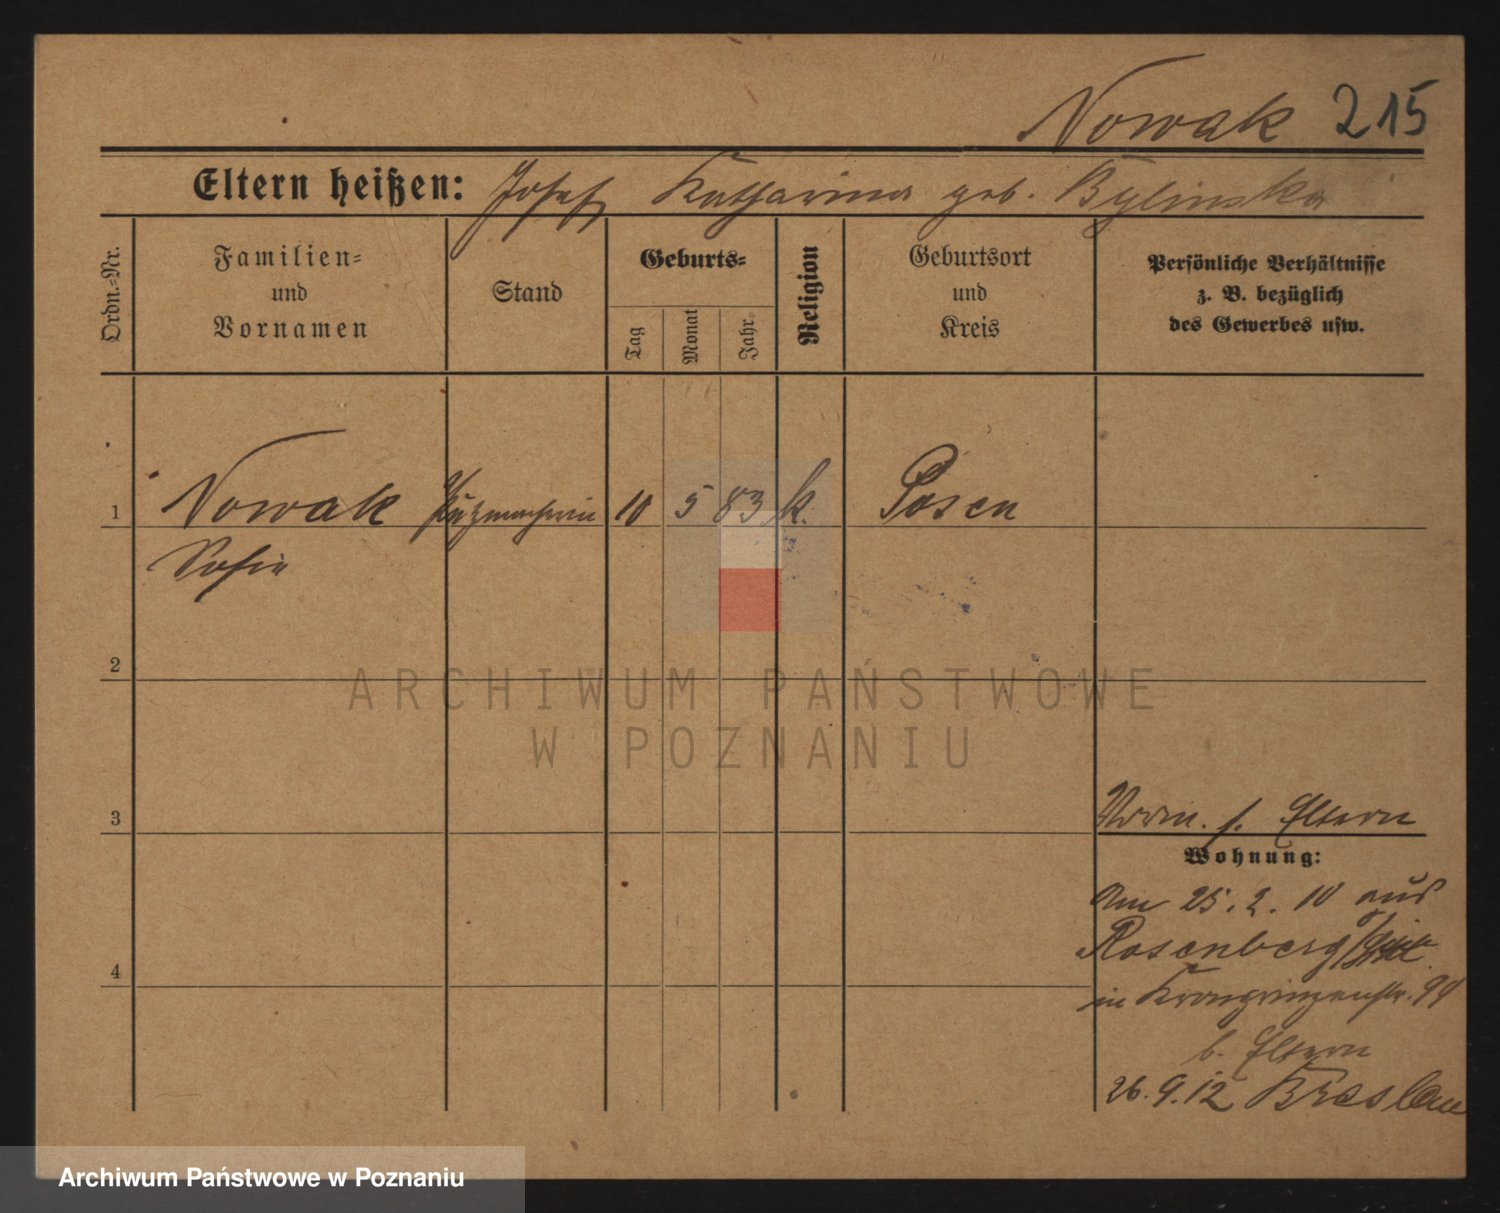 Nowak 215
Eltern heißen: Josef Katharina geb. Bylinska
Ordn.-Nr.
Familien-
und
Vornamen
Stand
Geburts-
Tag
Monat
Jahr
Religion
Geburtsort
und
Kreis
Persönliche Verhältnisse
z. B. bezüglich
des Gewerbes usw.
1 Nowak Putzmacherin 10 5 83 k. Posen
Sofie
2
ARCHIWUM PAŃSTWOWE
W POZNANIU
3
Vorm. s. Eltern
Wohnung:
Am 25.2.10 aus
Rosenberg
in Kronprinzenstr. 94
b. Eltern
26.9.12 Breslau
4
Archiwum Państwowe w Poznaniu